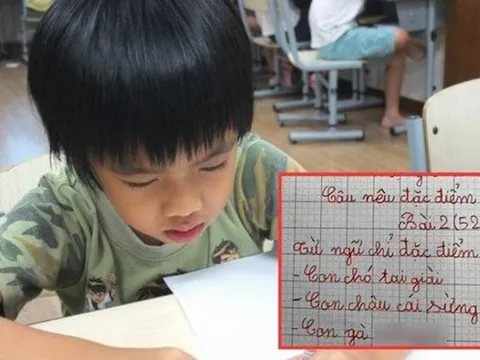 Câu nêu đặc điểm
Bài 2 (52
Từ ngữ chỉ đặc điểm
- Con chó tai giài
- Con châu cái sừng
- Con gà